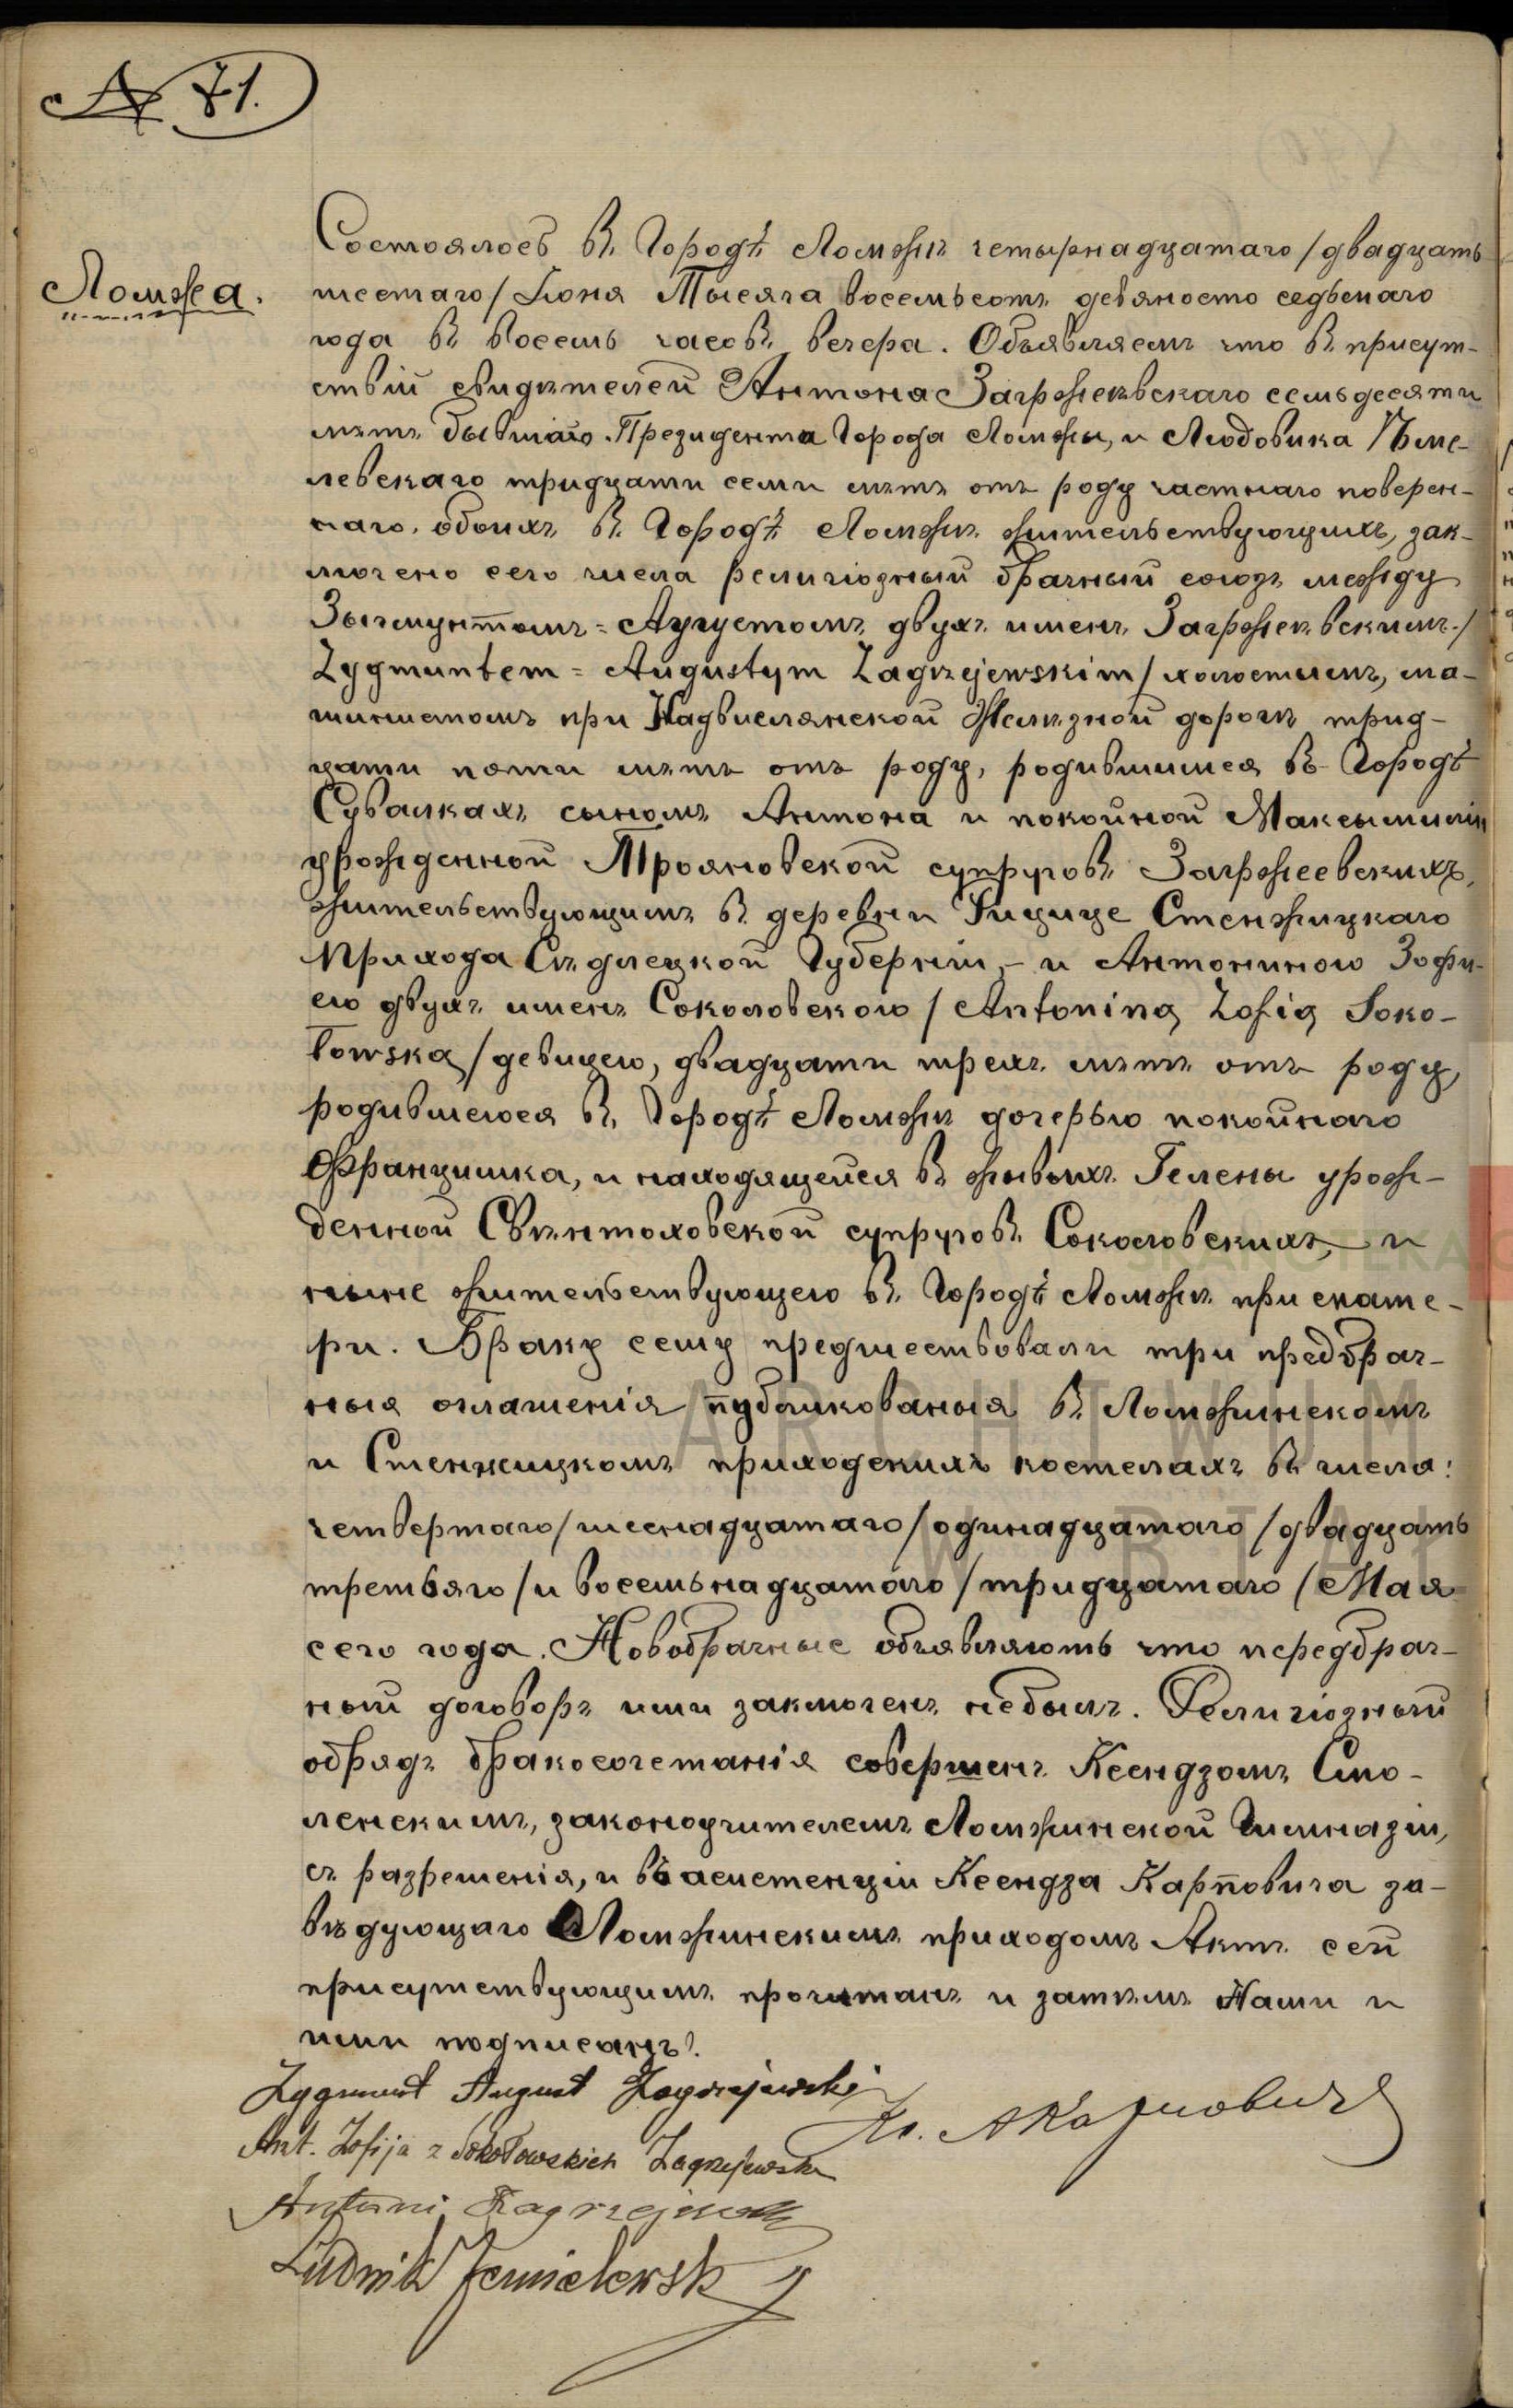 № 71.
Ломжа.
Состоялось въ Городѣ Ломжѣ четырнадцатаго /двадцать
шестаго/ Іюня Тысяча восемьсотъ девяносто седьмаго
года въ восемь часовъ вечера. Объявляемъ что въ присут-
ствіи свидѣтелей Антона Загржеевскаго семьдесяти
лѣтъ бывшаго Президента Города Ломжи, и Людовика Ѣме-
левскаго тридцати семи лѣтъ отъ роду частнаго поверен-
наго, обоихъ въ Городѣ Ломжѣ жительствующихъ, зак-
лючено сего числа религіозный брачный союзъ между
Зыгмунтомъ=Аугустомъ двухъ именъ Загржеевскимъ /
Zygmuntem = Augustym Zagrzejewskim / холостымъ, ма-
шинистомъ при Надвислянской Желѣзной дорогѣ трид-
цати пяти лѣтъ отъ роду, родившимся въ Городѣ
Сувалкахъ сыномъ Антона и покойной Максымиліи
урожденной Трояновской супруговъ Загржеевскихъ,
жительствующимъ въ деревни Стенжицкаго
Прихода Сѣдлецкой Губерніи, – и Антониною Зофи-
ею двухъ именъ Соколовскою / Antoniną Zofią Soko-
łowską / девицею, двадцати трехъ лѣтъ отъ роду,
родившеюся въ Городѣ Ломжѣ дочерью покойнаго
Францишка, и находящейся въ живыхъ Гелены урож-
денной Свѣнтоховской супруговъ Соколовскихъ, и
ныне жительствующею въ Городѣ Ломжѣ при мате-
ри. Браку сему предшествовали три предбрач-
ныя оглашенія публикованыя въ Ломжинскомъ
и Стенжицкомъ приходскихъ костелахъ въ числа:
четвертаго /шеснадцатаго/ одинадцатаго /двадцать
третьяго/ и восемьнадцатаго /тридцатаго/ Мая
сего года. Новобрачные объявляютъ что передбрач-
ный договоръ ими заключенъ небылъ. Религіозный
обрядъ бракосочетанія совершенъ Ксендзомъ Смо-
ленскимъ, законоучителемъ Ломжинской Гимназіи,
съ разрешенія, и въ асистенціи Ксендза Карповича за-
вѣдующаго Ломжинскимъ приходомъ Актъ сей
присутствующимъ прочитанъ и затѣмъ Нами и
ими подписанъ.
Zygmunt August Zagrzejewski
Кс. А Карповичъ
Ant. Zofija z Sokołowskich Zagrzejewska
Antoni Zagrzejewski
Ludwik Jemielewski
ARCHIWUM